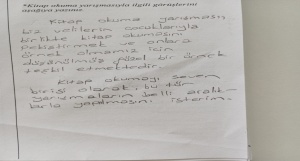 "Kitap okuma yarışmasıyla ilgili görüşlerini
aşağıya yazınız
Kitap okuma yarışması
biz velilerin çocuklarıyla
birlikte kitap okumasını
pekiştirmek ve onlara
örnek olmamız için
düşünülmüş güzel bir örnek
teşkil etmektedir.
Kitap okumayı seven
birisi olarak, bu tür
yarışmaların belli aralık-
larla yapılmasını isterim.